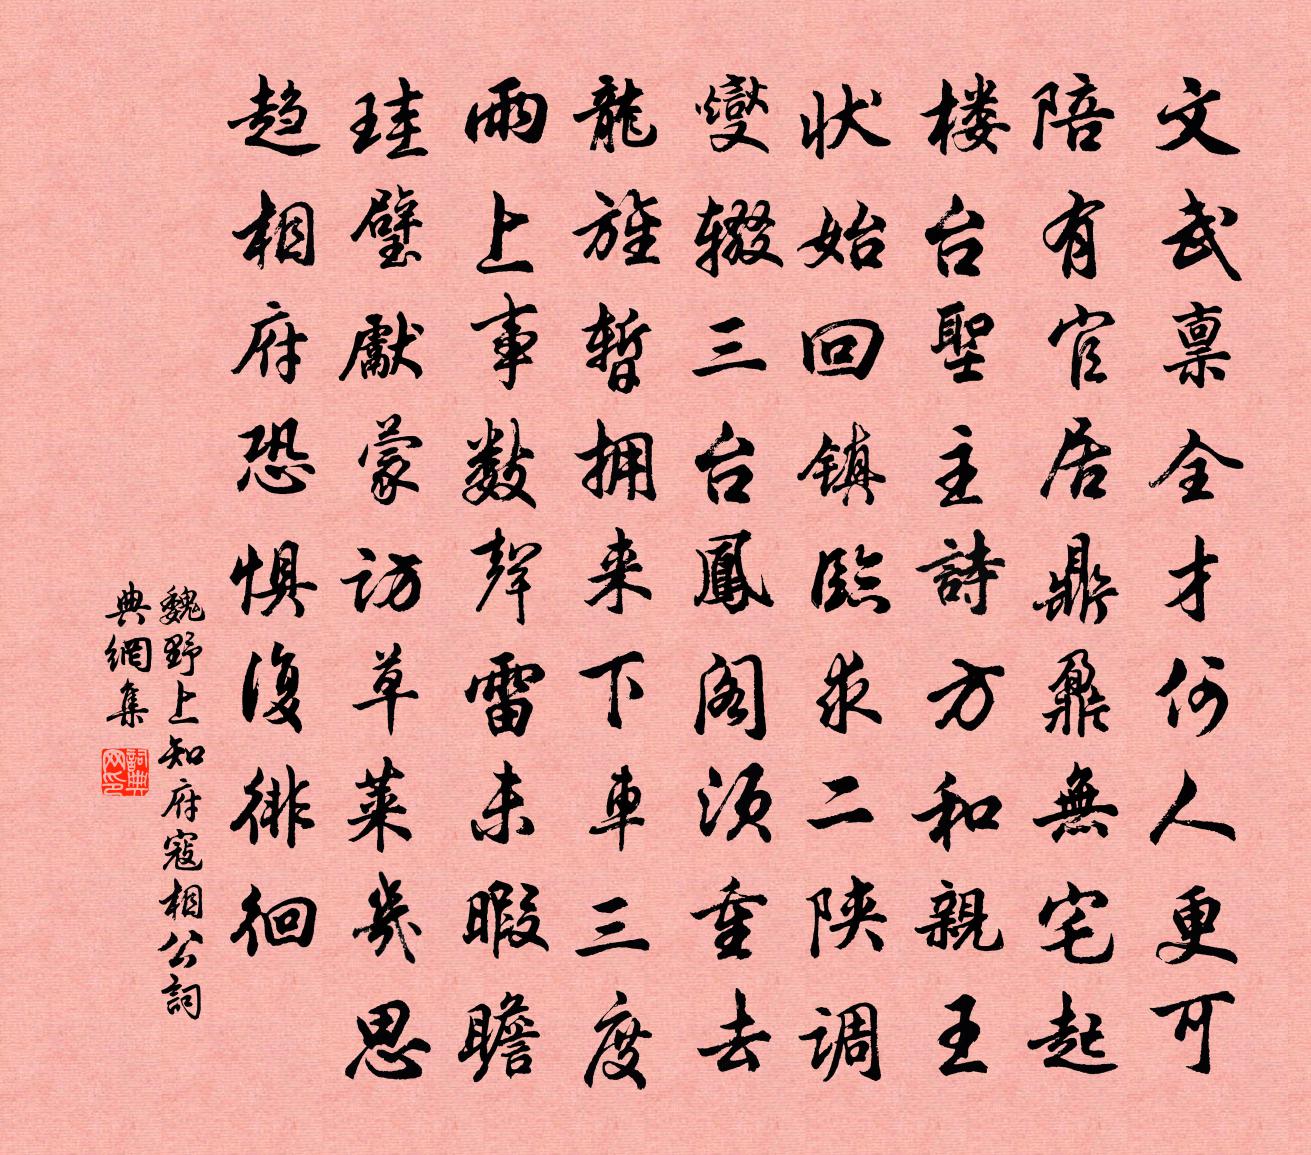 文武禀全才何人更可
陪有官居鼎鼐無宅起
楼台聖主詩方和親王
状始回镇臨求二陕调
燮辍三台鳳阁须重去
龍旌暫拥来下車三度
雨上事数聲雷未暇瞻
珪璧獻蒙访草莱幾思
趋相府恐惧復徘徊
魏野上知府寇相公詞
典網集
詞典网印